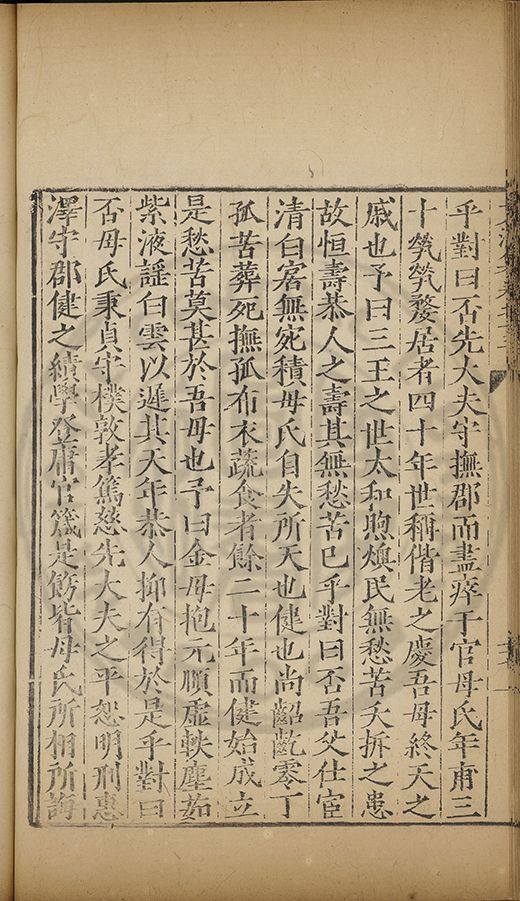 乎對曰否先大夫守撫郡而盡瘁于官母氏年甫三
十煢煢嫠居者四十年世稱偕老之慶吾母終天之
戚也予曰三王之世太和煦燠民無愁苦夭拆之患
故恒壽恭人之壽其無愁苦已乎對曰否吾父仕宦
清白窘無宛積母氏自失所天也健也尚齠齔零丁
孤苦葬死撫孤布衣蔬食者餘二十年而健始成立
是愁苦莫甚於吾母也予曰金母抱元順虛軼塵茹
紫液謡白雲以遲其天年恭人抑有得於是乎對曰
否母氏秉貞守樸敦孝篤慈先大夫之平恕明刑惠
澤守郡健之績學登庸官箴是飭皆母氏所相所誨